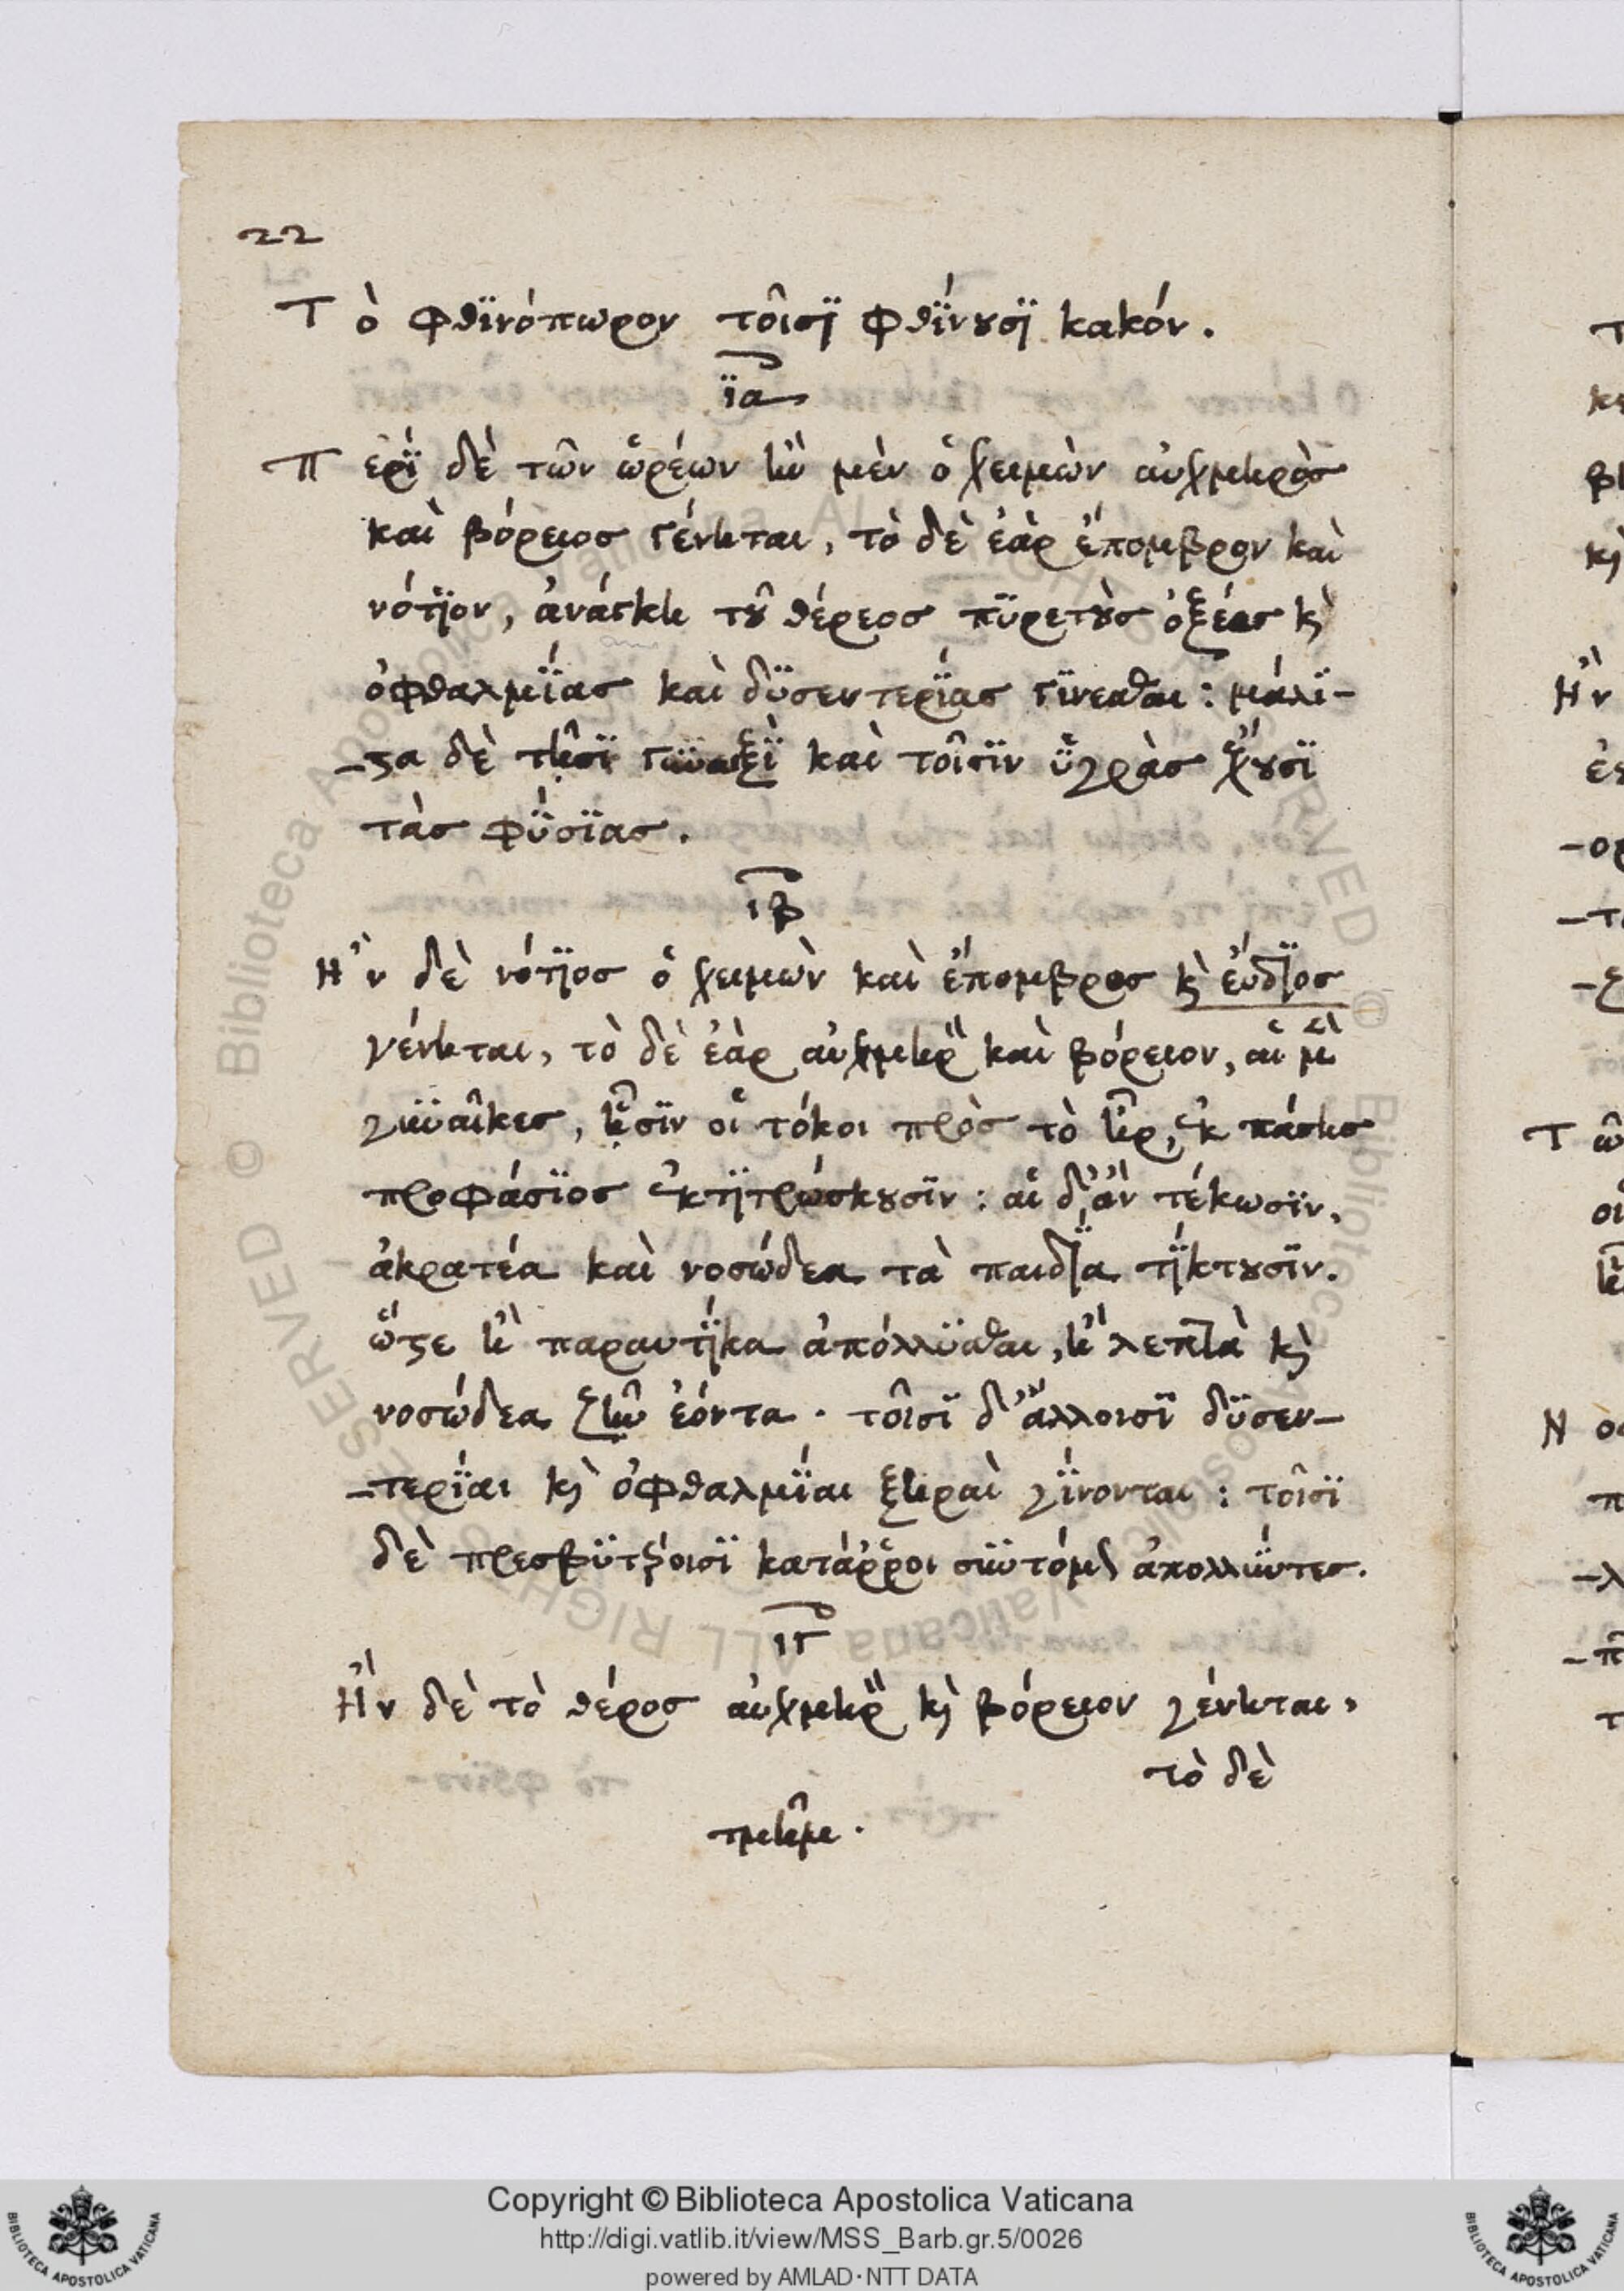 22
Τὸ φθϊνόπωρον τοῖσϊ φθΐνουσϊ κακόν.
ϊα
Περὶ δὲ τῶν ὡρέων ἢν μὲν ὁ χειμὼν αὐχμηρὸσ
καὶ βόρειοσ γένηται, τὸ δὲ ἐὰρ ἔπομβρον καὶ
νότϊον, ἀνάγκη τοῦ θέρεοσ πϋρετοὺσ ὀξέασ κὶ
ὀφθαλμΐασ καὶ δϋσεντερΐασ γΐνεσθαι: μάλϊ-
-ςα δὲ τῇσϊ γϋναιξῒ καὶ τοῖσϊν ὑγρὰσ ἔχουσϊ
τὰσ φΰσϊασ.
ιβ
Ἢν δὲ νότϊοσ ὁ χειμὼν καὶ ἔπομβροσ κὶ εὔδϊοσ
γένηται, τὸ δὲ ἐὰρ αὐχμηρὸν καὶ βόρειον, αἱ μὲν
γυναῖκεσ, ᾗσϊν οἱ τόκοι πρὸσ τὸ ἦρ, ἐκ πάσησ
προφάσϊοσ ἐκτϊτρώσκουσϊν: αἱ δ' ἂν τέκωσϊν,
ἀκρατέα καὶ νοσώδεα τὰ παιδΐα τΐκτουσϊν.
ὥςε ἢ παραυτΐκα ἀπόλλϋσθαι, ἢ λεπτὰ κὶ
νοσώδεα ζῆν ἐόντα. τοῖσϊ δ' ἄλλοισϊ δϋσεν-
-τερΐαι κὶ ὀφθαλμΐαι ξηραὶ γΐνονται: τοῖσϊ
δὲ πρεσβϋτέροισϊ κατάῤῥοι συντόμως ἀπολλύντεσ.
ιγ
Ἢν δὲ τὸ θέροσ αὐχμηρὸν κὶ βόρειον γένηται,
τὸ δὲ
τμῆμα.
Copyright © Biblioteca Apostolica Vaticana
http://digi.vatlib.it/view/MSS_Barb.gr.5/0026
powered by AMLAD·NTT DATA